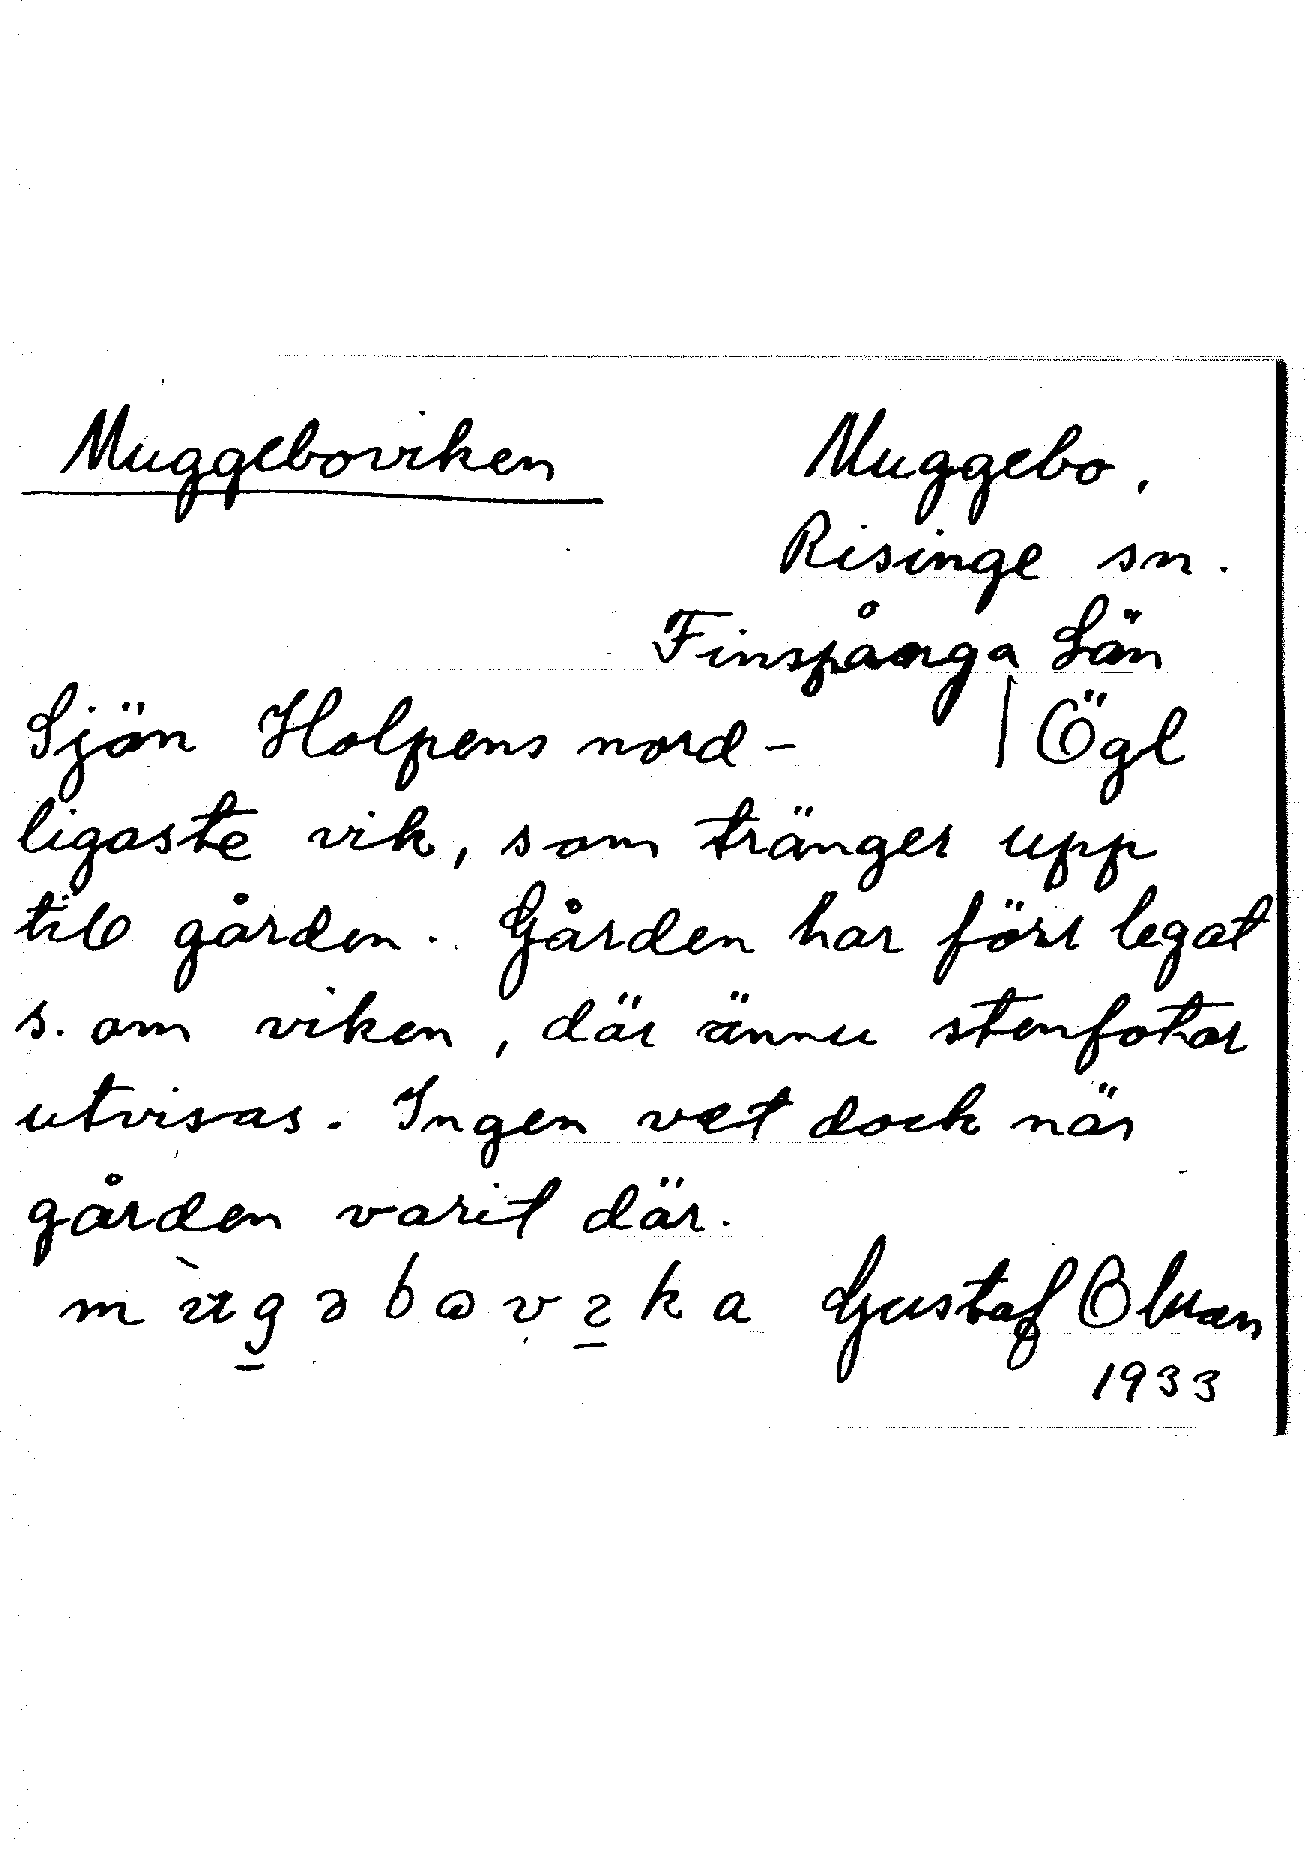 Muggeboviken
Muggebo,
Risinge sn.
Finspånga Län
Sjön Holpens nord-
| Ögl
ligaste vik, som tränger upp
till gården. Gården har förr legat
s. om viken, där ännu stenfotar
utvisas. Ingen vet dock när
gården varit där.
Gustaf
1933